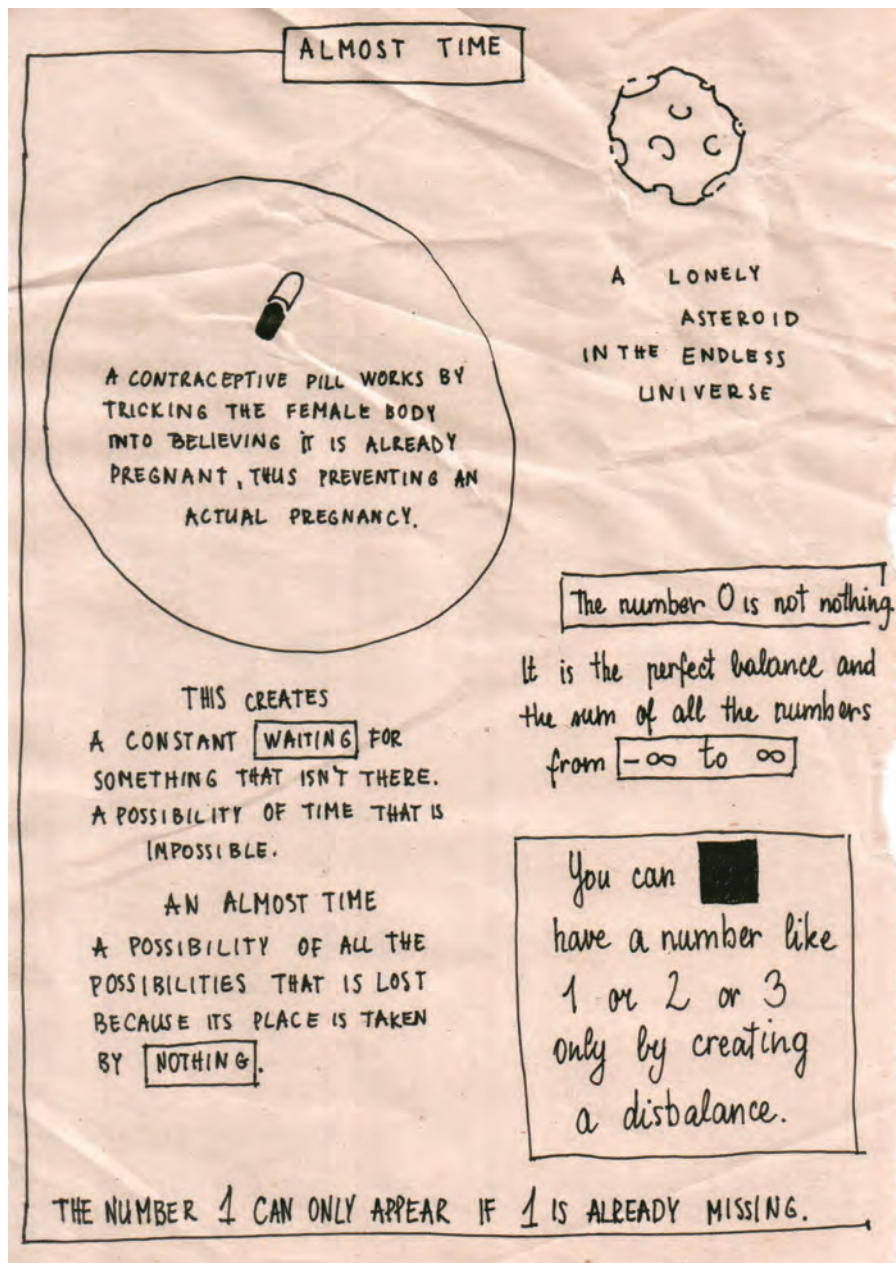 ALMOST TIME
A LONELY
ASTEROID
IN THE ENDLESS
UNIVERSE
A CONTRACEPTIVE PILL WORKS BY
TRICKING THE FEMALE BODY
INTO BELIEVING IT IS ALREADY
PREGNANT, THUS PREVENTING AN
ACTUAL PREGNANCY.
THIS CREATES
A CONSTANT WAITING FOR
SOMETHING THAT ISN'T THERE.
A POSSIBILITY OF TIME THAT IS
IMPOSSIBLE.
AN ALMOST TIME
A POSSIBILITY OF ALL THE
POSSIBILITIES THAT IS LOST
BECAUSE ITS PLACE IS TAKEN
BY NOTHING.
The number 0 is not nothing.
It is the perfect balance and
the sum of all the numbers
from -∞ to ∞
You can
have a number like
1 or 2 or 3
only by creating
a disbalance.
THE NUMBER 1 CAN ONLY APPEAR IF 1 IS ALREADY MISSING.